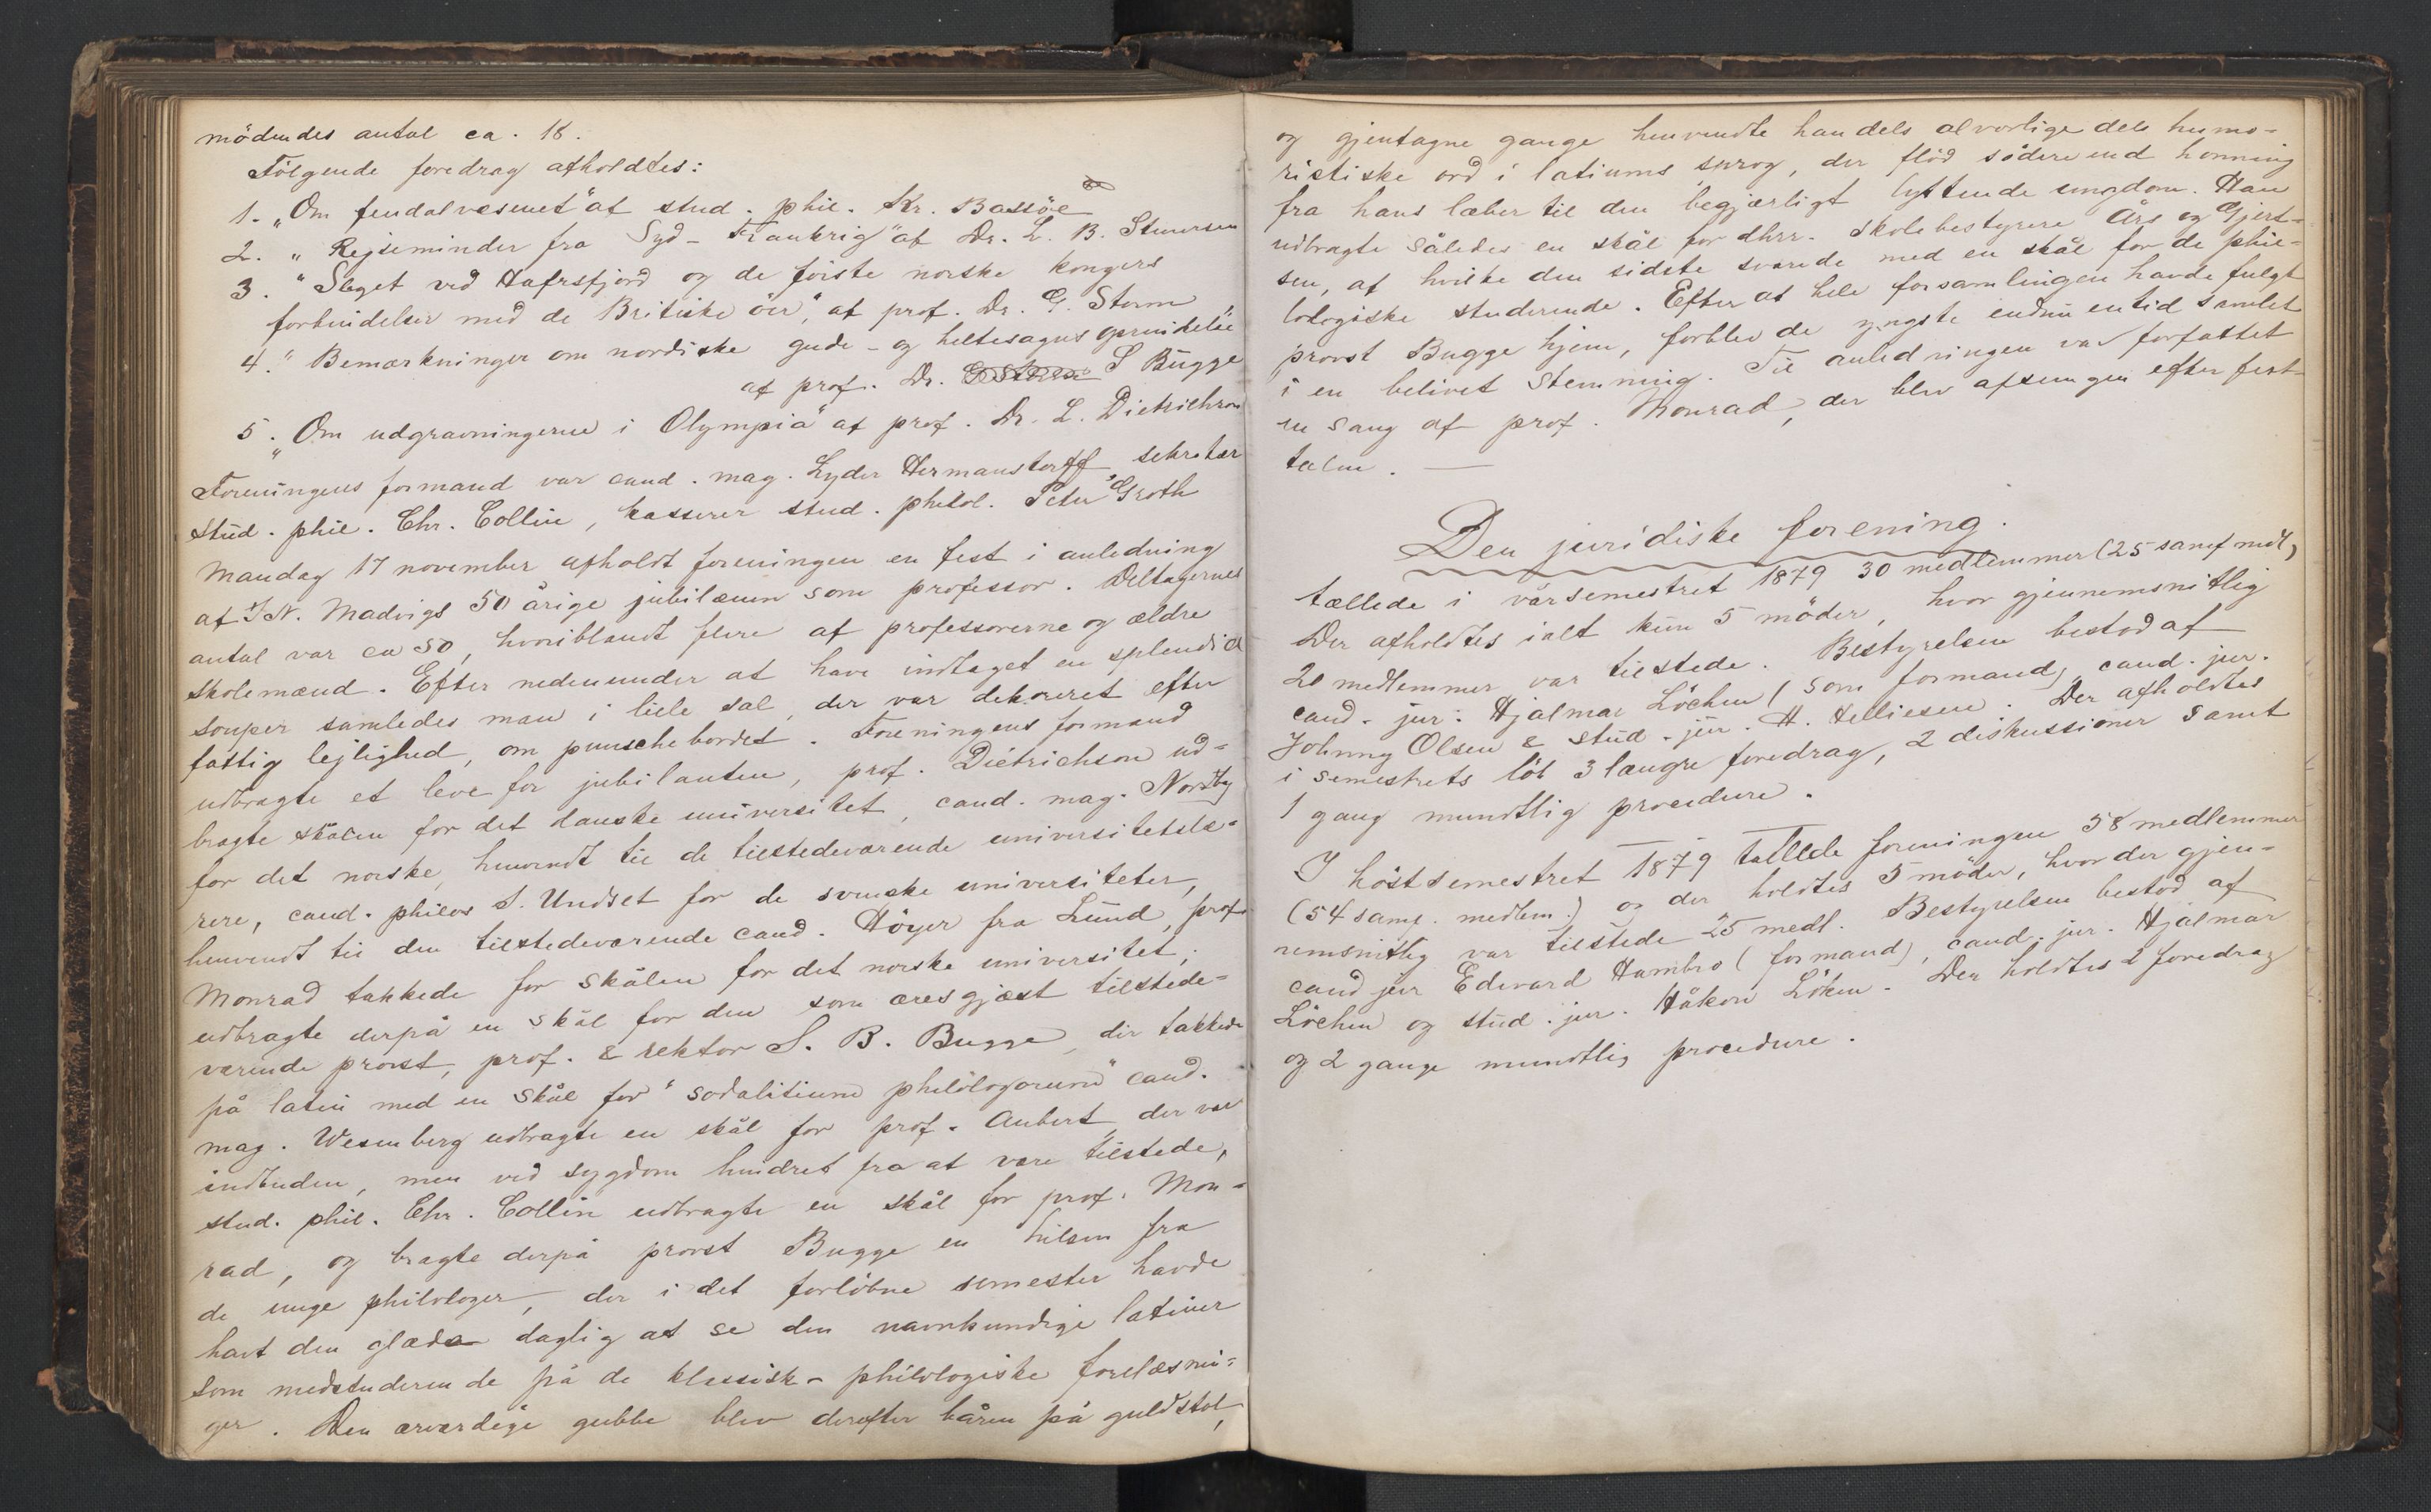 mödendes antal ca. 18.
Fölgende foredrag afholdtes:
1. „Om feudalvæsenet" af stud. phil. Kr. Bassöe
2. „Rejseminder fra Syd-Frankrig" af Dr. L. B. Stenersen
3. "Slaget ved Hafrsfjord og de förste norske kongers
forbindelser med de Britiske öer", af prof. Dr. G. Storm
4. "Bemærkninger om nordiske gude- og heltesagns oprindelse"
af prof. Dr. S Bugge
5. „Om udgravningerne i Olympia" af prof. Dr. L. Dietrichson
Foreningens formand var cand. mag. Lyder Hermanstorff, sekretær
stud. phil. Chr. Collin, kasserer stud. philol. Peter Groth
Mandag 17 november afholdt foreningen en fest i anledning
af J N. Madvigs 50 årige jubilæum som professor. Deltagernes
antal var ca 50, hvoriblandt flere af professorerne og ældre
skolemænd. Efter nedenunder at have indtaget en splendid
souper samledes man i lille sal, der var dekoreret efter
fattig lejlighed, om punschebordet. Foreningens formand
udbragte et leve for jubilanten, prof. Dietrichson ud-
bragte skålen for det danske universitet, cand. mag. Nordby
for det norske, henvendt til de tilstedeværende universitetslæ-
rere, cand. philos I. Undset for de svenske universiteter,
henvendt til den tilstedeværende cand. Höyer fra Lund, prof.
Monrad takkede for skålen for det norske universitet;
udbragte derpå en skål for den som æresgjæst tilstede-
værende provst, prof. & rektor S. B. Bugge, der takkede
på latin med en skål for "sodalitium philologorum" cand.
mag. Wesenberg udbragte en skål for prof. Aubert, der var
indbuden, men ved sygdom hindret fra at være tilstede,
stud. phil. Chr. Collin udbragte en skål for prof. Mon-
rad, og bragte derpå provst Bugge en hilsen fra
de unge philologer, der i det forlöbne semester havde
havt den glæde daglig at se den navnkundige latiner
som medstuderende på de klassisk-philologiske forelæsnin-
ger. Den ærværdige gubbe blev derefter båren på guldstol,
og gjentagne gange henvendte han dels alvorlige dels humo-
ristiske ord i latiums sprog, der flöd södere end honning
fra hans læber til den begjærligt lyttende ungdom. Han
udbragte således en skål for dhrr. skolebestyrere Års og Gjert-
sen, af hvilke den sidste svarede med en skål for de phil-
lologiske studerende. Efter at hele forsamlingen havde fulgt
provst Bugge hjem, forblev de yngste endnu en tid samlet
i en belivet stemning. Til anledningen var forfattet
en sang af prof. Monrad, der blev afsungen efter fest-
talen. —
Den juridiske forening.
tællede i vårsemestret 1879 30 medlemmer (25 samf medl)
Der afholdtes ialt kun 5 möder, hvor gjennemsnitlig
20 medlemmer var tilstede. Bestyrelsen bestod af
cand. jur. Hjalmar Löchen (som formand), cand. jur.
Johnny Olsen & stud. jur. H. Helliesen. Der afholdtes
i semestrets löb 3 længre foredrag, 2 diskussioner samt
1 gang mundtlig procedure.
I höstsemestret 1879 tællede foreningen 58 medlemmer
(54 samf. medlem.) og der holdtes 5 möder, hvor der gjen-
nemsnitlig var tilstede 25 medl. Bestyrelsen bestod af
cand jur Edvard Hambro (formand), cand. jur. Hjalmar
Löchen og stud. jur. Håkon Löken. Der holdtes 2 foredrag
og 2 gange mundtlig procedure.